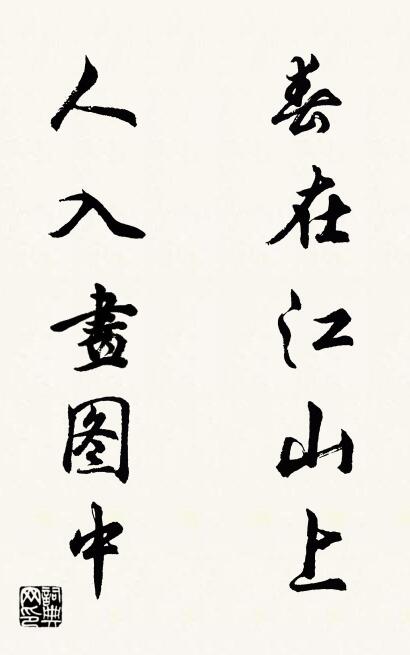 春在江山上
人入畫图中
詞典网印